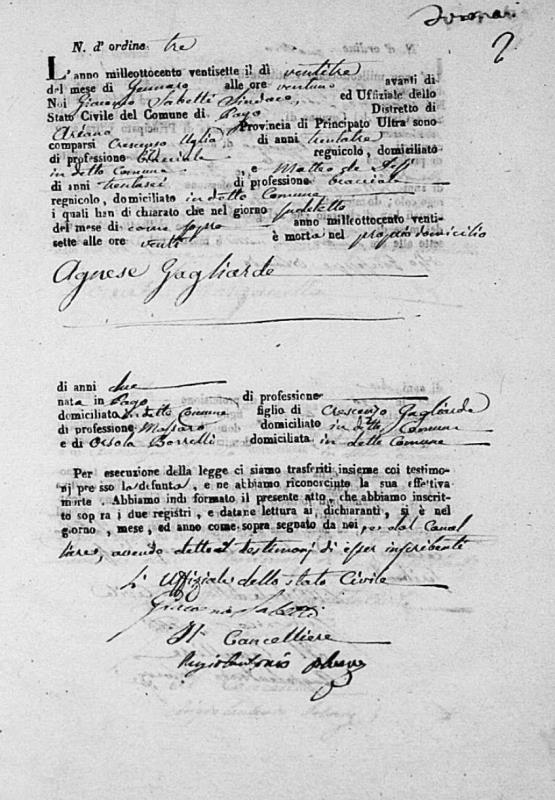 2
N. d'ordine tre
L'anno milleottocento ventisette il dì ventitre
del mese di Gennaro alle ore ventuno avanti di
Noi Giacomo Sabetti Sindaco, ed Uffiziale dello
Stato Civile del Comune di Pago Distretto di
Ariano Provincia di Principato Ultra sono
comparsi Crescenzo Uglia di anni trentatre
di professione bracciale regnicolo, domiciliato
in detto Comune, e Matteo de
di anni trentasei di professione bracciale
regnicolo, domiciliato in detto Comune
i quali han di chiarato che nel giorno sudetto
del mese di come sopra anno milleottocento venti-
sette alle ore venti è morta nel proprio domicilio
Agnese Gagliarde
di anni due
nata in Pago di professione
domiciliata in detto Comune figlio di Crescenzo Gagliarde
di professione Massaro domiciliato in detto Comune
e di Orsola Borrelli domiciliata in detto Comune
Per esecuzione della legge ci siamo trasferiti insieme coi testimo-
nj presso la defunta, e ne abbiamo riconosciuto la sua effettiva
morte. Abbiamo indi formato il presente atto, che abbiamo inscrit-
to sopra i due registri, e datane lettura ai dichiaranti, si è nel
giorno, mese, ed anno come sopra segnato da noi, e dal Cancel
liere, avendo detto i testimonj di esser inscribenti
L'Uffiziale dello stato Civile
Giacomo Sabetti
Il Cancelliere